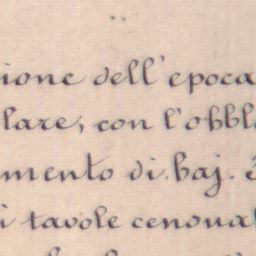 ione dell'epoca
lare, con l'obbl
mento di baj. 3
i tavole cenoual